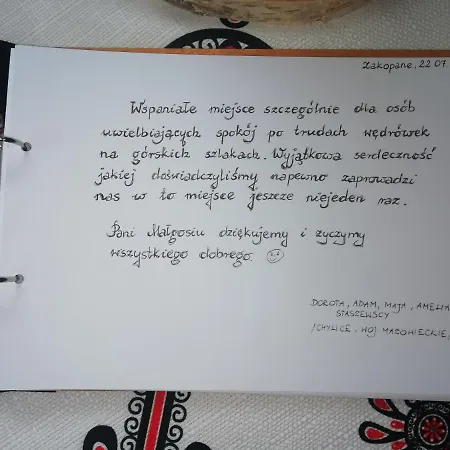 Zakopane, 22 07
Wspaniałe miejsce szczególnie dla osób
uwielbiających spokój po trudach wędrówek
na górskich szlakach. Wyjątkowa serdeczność
jakiej doświadczyliśmy napewno zaprowadzi
nas w to miejsce jeszcze niejeden raz.
Pani Małgosiu dziękujemy i życzymy
wszystkiego dobrego ☺
DOROTA, ADAM, MAJA, AMELIA
STASZEWSCY
/CHYLICE, WOJ MAZOWIECKIE/